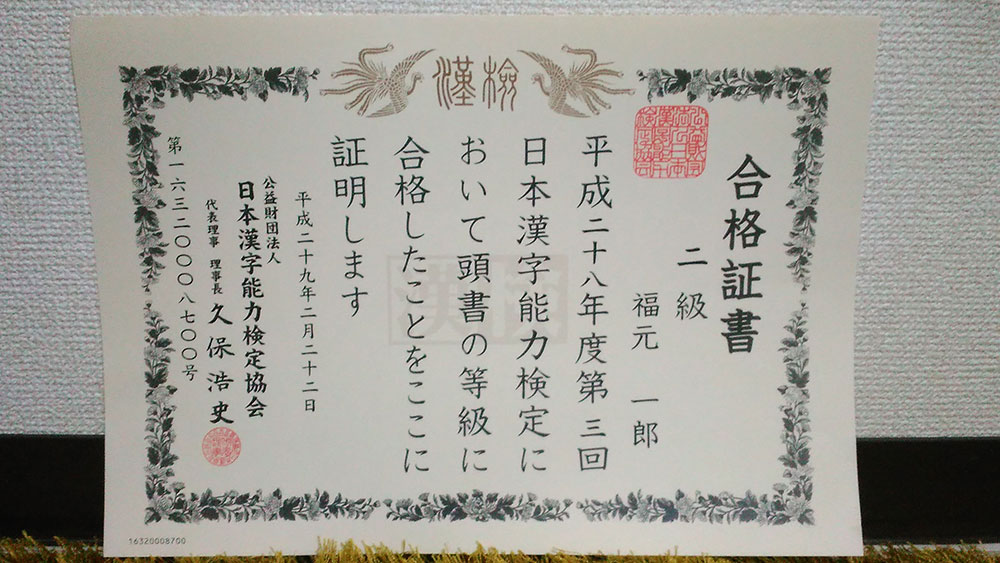 漢検
合格証書
二級
福元 一郎
平成二十八年度第三回
日本漢字能力検定に
おいて頭書の等級に
合格したことをここに
証明します
平成二十九年二月二十二日
公益財団法人
日本漢字能力検定協会
代表理事 理事長 久保浩史
第一六三二〇〇〇八七〇〇号
16320008700
漢検